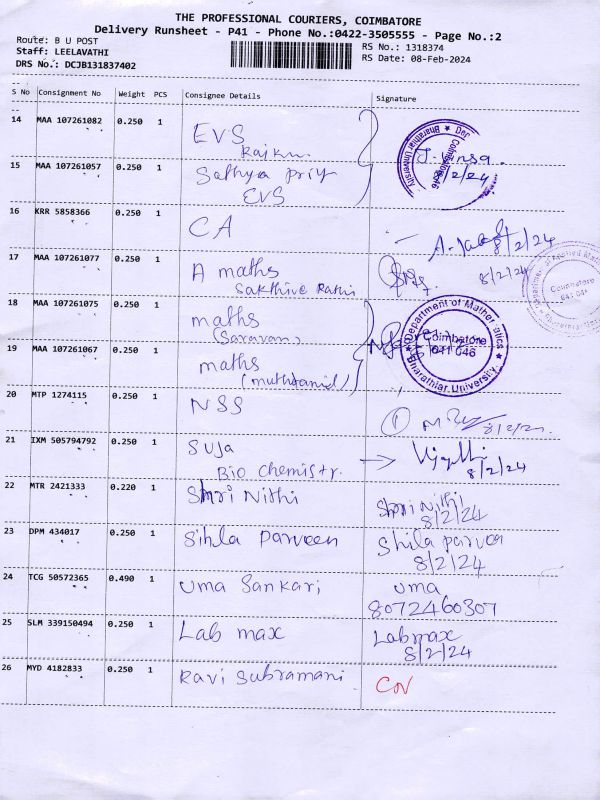 THE PROFESSIONAL COURIERS, COIMBATORE
Delivery Runsheet - P41 - Phone No.:0422-3505555 - Page No.:2
Route: B U POST
RS No.: 1318374
Staff: LEELAVATHI
RS Date: 08-Feb-2024
DRS No.: DCJB131837402
S No Consignment No Weight PCS Consignee Details Signature
14 MAA 107261082 0.250 1 EVS
15 MAA 107261057 0.250 1 Sathya priy
EVS
8/2/24
16 KRR 5858366 0.250 1 CA
8/2/24
17 MAA 107261077 0.250 1 A maths
Sakthive Rathi
8/2/24
Coimbatore
641 041
18 MAA 107261075 0.250 1 maths
(Saravan)
Department of Mathematics
Coimbatore
641 046
Bharathiar University
19 MAA 107261067 0.250 1 maths
(muthtamil)
20 MTP 1274115 0.250 1 NSS
21 IXM 505794792 0.250 1 Suja
Bio chemistr.
8/2/24
22 MTR 2421333 0.220 1 Shri Nithi
Shri Nithi
8/2/24
23 DPM 434017 0.250 1 Sihla Parveen
Shila parvee
8/2/24
24 TCG 50572365 0.490 1 Uma Sankari
uma
8072460307
25 SLM 339150494 0.250 1 Lab max
Labmax
8/2/24
26 MYD 4182833 0.250 1 Ravi Subramani
COV